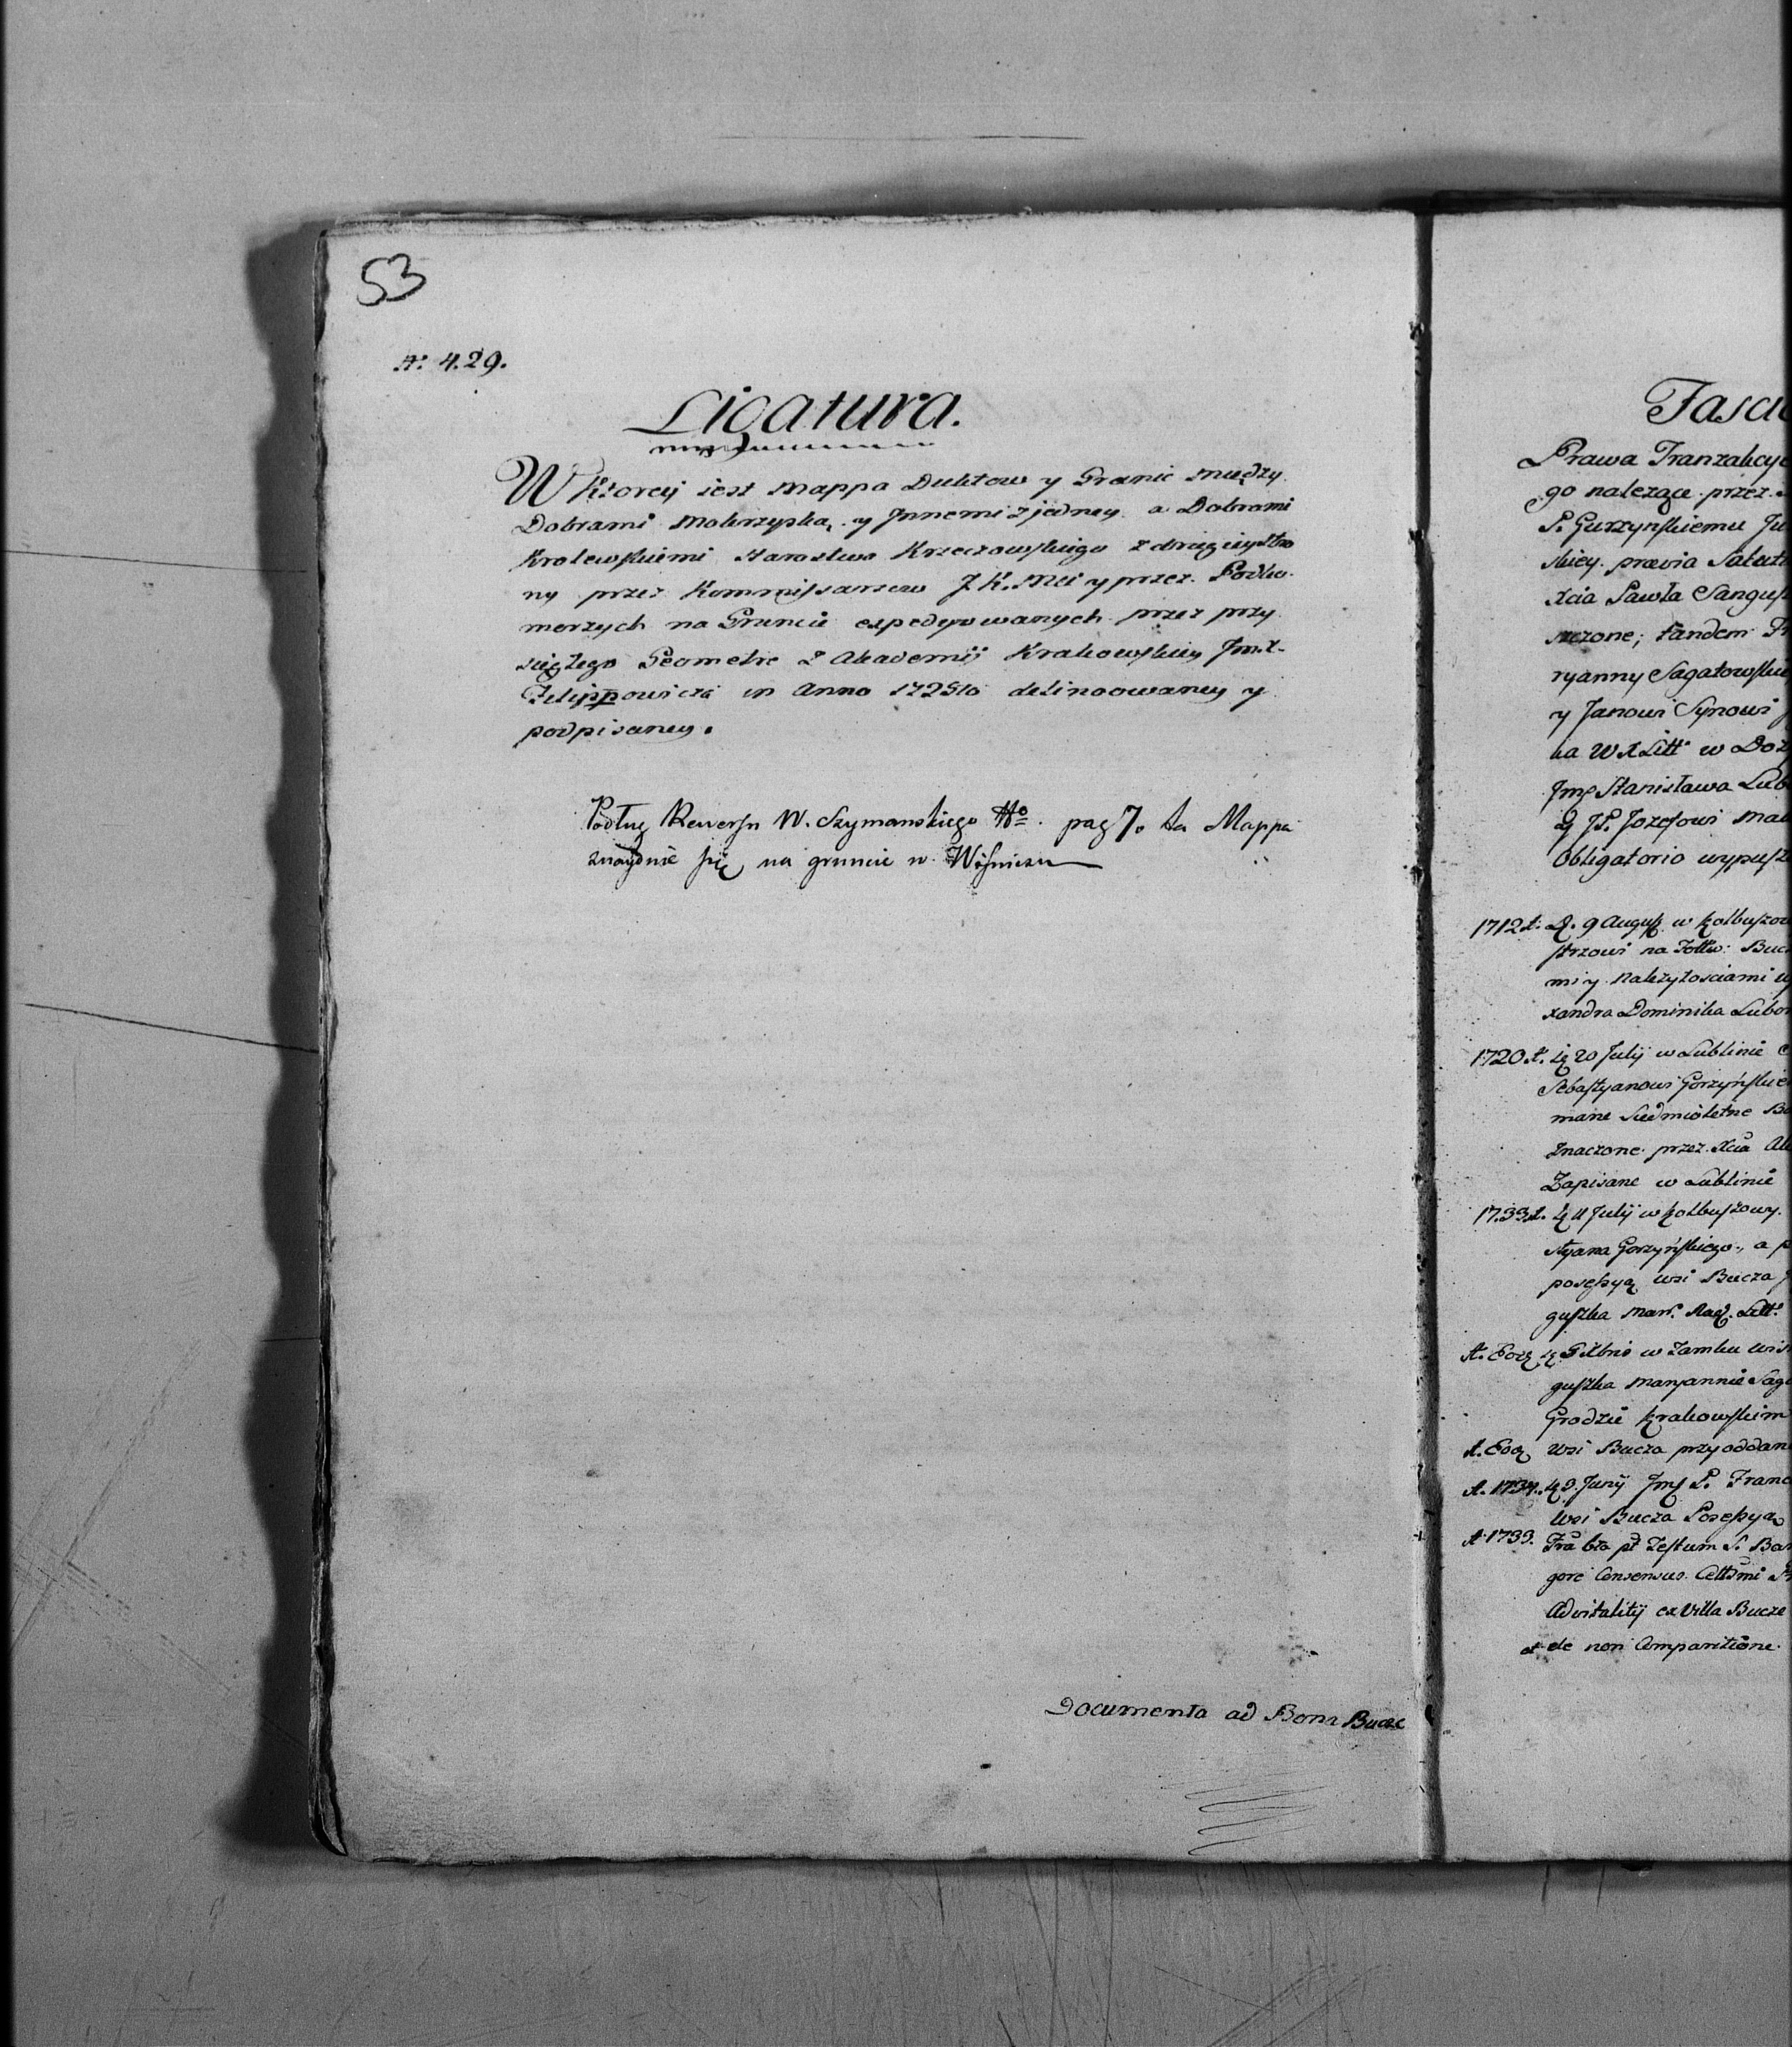 53
N: 429.
Ligatura.
W Ktorey jest Mappa Duktow y Granic między
Dobrami Mokrzyską y Innemi z jedney a Dobrami
Krolewskiemi Starostwa Krzeczowskiego z drugiey stro
ny przez Kommissarzow J K Mci y przez Podko
morzych na Gruncie expedyowanych przez przy
sięgłego Geometrę z Akademij Krakowskiey Jm X
Filippowicza in Anno 1725to delineowaney y
podpisaney.
Podług Rewersu W. Szymanskiego pag 7. ta Mappa
znayduie się na gruncie w Wiśniczu
Documenta ad Bona Bucze
Fasci
Prawa Tranzakcy
go należące przez
P. Gurzynskiemu
skiey prawia
Xcia Pawła Sangus
szczone; tandem
ryanny Sagatowskie
y Janowi Synowi
ka W X Litt: w
Jmp Stanisława Lub
JP. Jozefowi
Obligatorio wypusz
1712 A: D. 9 August w Kolbuszow
strzowi na Folw: Buc
mi y należytosciami
xandra Dominika Lubo
1720 A. D 20 Julij w Lublinie
Sebastyanowi Gorzyńskie
mane Siedmioletne
Znaczone przez Xcia Ale
Zapisane w Lublinie
1733 A. D 11 Julij w Kolbuszowy.
styana Gorzyńskiego, a
possessyą wsi Bucza
guszka Mar. Nad. Litt:
A. Eod w Zamku
guszka Maryannie Sag
Grodzie Krakowskim
A. Eod wsi Bucza przy oddan
A. 1734. D 3. Junij Jmp P. Franc
wsi Bucza Possessya
A 1733. Fra
gore Consensus
Advitalitij ex Villa Bucze
et de non Comparitione.